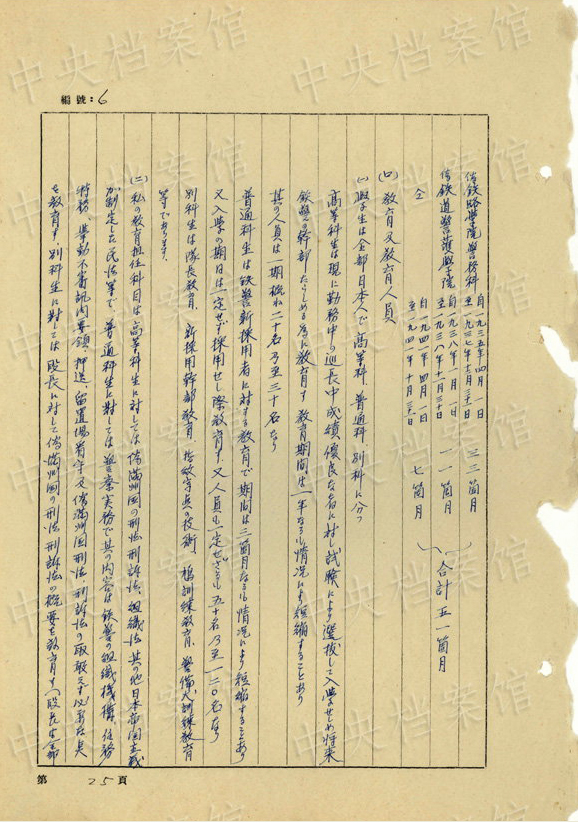 編號：6
偽鉄路学院警務科 自一九三五年四月一日 至一九三七年十二月三十一日 三三箇月
偽鉄道警護学院 自一九三八年一月一日 至一九三八年十一月三十日 一一箇月
仝 自一九四一年四月一日 至一九四一年十月三十一日 七箇月
合計五一箇月
(口) 教育及教育人員
(一) 学生は全部日本人で高等科、普通科、別科に分つ
高等科生は現に勤務中の巡長中成績優良なる者に対し試験により選抜して入学せしめ将来
鉄警の幹部たらしめる為に教育す 教育期間は一年なるも情況により短縮することあり
其の人員は一期概ね二十名乃至三十名なり
普通科生は鉄警新採用者に対する教育で期間は三箇月なるも情況により短縮することあり
又入学の期日は一定せず採用せし際教育す 又人員も一定せざるも五十名乃至一二〇名なり
別科生は隊長教育、新採用幹部教育、技術、訓練教育、警備犬訓練教育
等であります。
(二) 私の教育担任科目は高等科生に対しては偽満州国の刑法刑訴法、組織法 其の他日本帝国主義
が制定した民法等で、普通科生に対しては警察実務で其の内容は鉄警の組織機構、任務
特務、挙動不審訊問要領、押送、留置場看守及偽満州国刑法、刑訴法の取敢えず必要な点
を教育す、別科生に対しては段長に対して偽満州国の刑法、刑訴法の概要を教育す（段長は全部
第 25 頁
中央档案馆